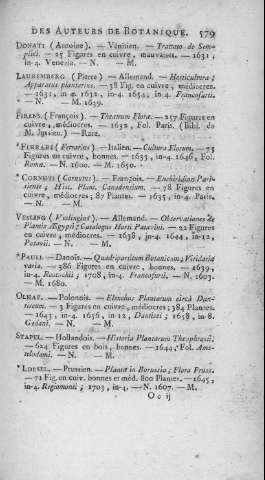 DES AUTEURS DE BOTANIQUE. 579
DONATI (Antoine). — Vénitien. — Trattato de Sem-
plici. — 25 Figures en cuivre, mauvaises. — 1631,
in-4. Venezia. — N. — M.
LAUREMBERG (Pierre) — Allemand. — Horticultura;
Apparatus plantarius. — 38 Fig. en cuivre, médiocres.
— 1631, in-4. 1632, in-4. 1654, in-4. Francofurti.
— N. — M. 1639.
(François). — Theatrum Floræ. — 257 Figures en
cuivre, médiocres. — 1632, Fol. Paris. (Bibl. de
M. Jussieu.) — Rare.
*FERRARI (Ferrarius) — Italien. — Cultura Florum. — 75
Figures en cuivre, bonnes. — 1633, in-4. 1646, Fol.
Roma. — N. 1600. — M. 1650.
*CORNUTI (Cornutus). — François. — Enchiridion Pari-
siense; Hist. Plant. Canadensium. — 78 Figures en
cuivre, médiocres; 87 Plantes. — 1635, in-4. Paris.
— N. — M.
VESLING (Veslingius). — Allemand. — Observationes de
Plantis Ægypti; Catalogus Horti Patavini. — 22 Figures
en cuivre, médiocres. — 1638, in-4. 1644, in-12,
Patavii. — N. — M.
*PAULI. — Danois. — Quadripartitum Botanicum; Viridaria
varia. — 386 Figures en cuivre, bonnes. — 1639,
in-4. Rostochii; 1708, in-4. Francofurti. — N. 1603.
— M. 1680.
OLHAF. — Polonois. — Elenchus Plantarum circà Dan-
tiscum. — 3 Figures en cuivre, médiocres; 384 Plantes.
— 1643, in-4. 1656, in-12, Dantisci; 1658, in-8.
Gedani. — N. — M.
STAPEL. — Hollandois. — Historia Plantarum Theophrasti;
— 624 Figures en bois, bonnes. — 1644, Fol. Ams-
telodami. — N. — M.
*LOESEL. — Prussien. — Plantæ in Borussia; Flora Pruss.
— 72 Fig. en cuiv. bonnes et méd. 800 Plantes. — 1645,
in-4. Regiomonti; 1703, in-4. — N. 1607. — M.
O o ij